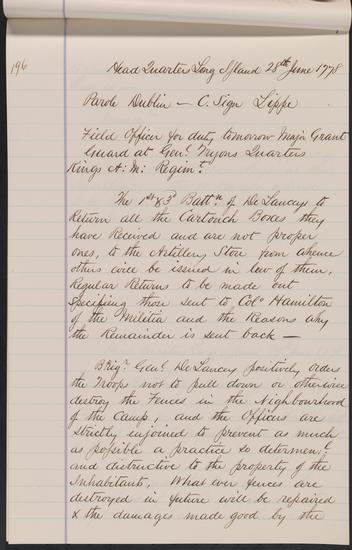 196
Head Quarters Long Island 28th June 1778
Parole Dublin — C. Sign Lippe
Field Officer for duty tomorrow Major Grant
Guard at Genl. Tryons Quarters
Kings A: M: Regimt.
The 1st & 3d Battn of De Lanceys to
Return all the Cartouch Boxes they
have Received and are not proper
ones, to the Artillery Store from whence
others will be issued in lew of them.
Regular Returns to be made out
Specifying those sent to Colo Hamilton
of the Militia and the Reasons why
the Remainder is sent back —
Brigr. Genl. De Lancey positively orders
the Troops not to pull down or otherwise
destroy the Fences in the Neighbourhood
of the Camp, and the Officers are
Strictly enjoined to prevent as much
as possible a practice so
and distructive to the property of the
Inhabitants. What ever fences are
destroyed in future will be repaired
& the damages made good by the